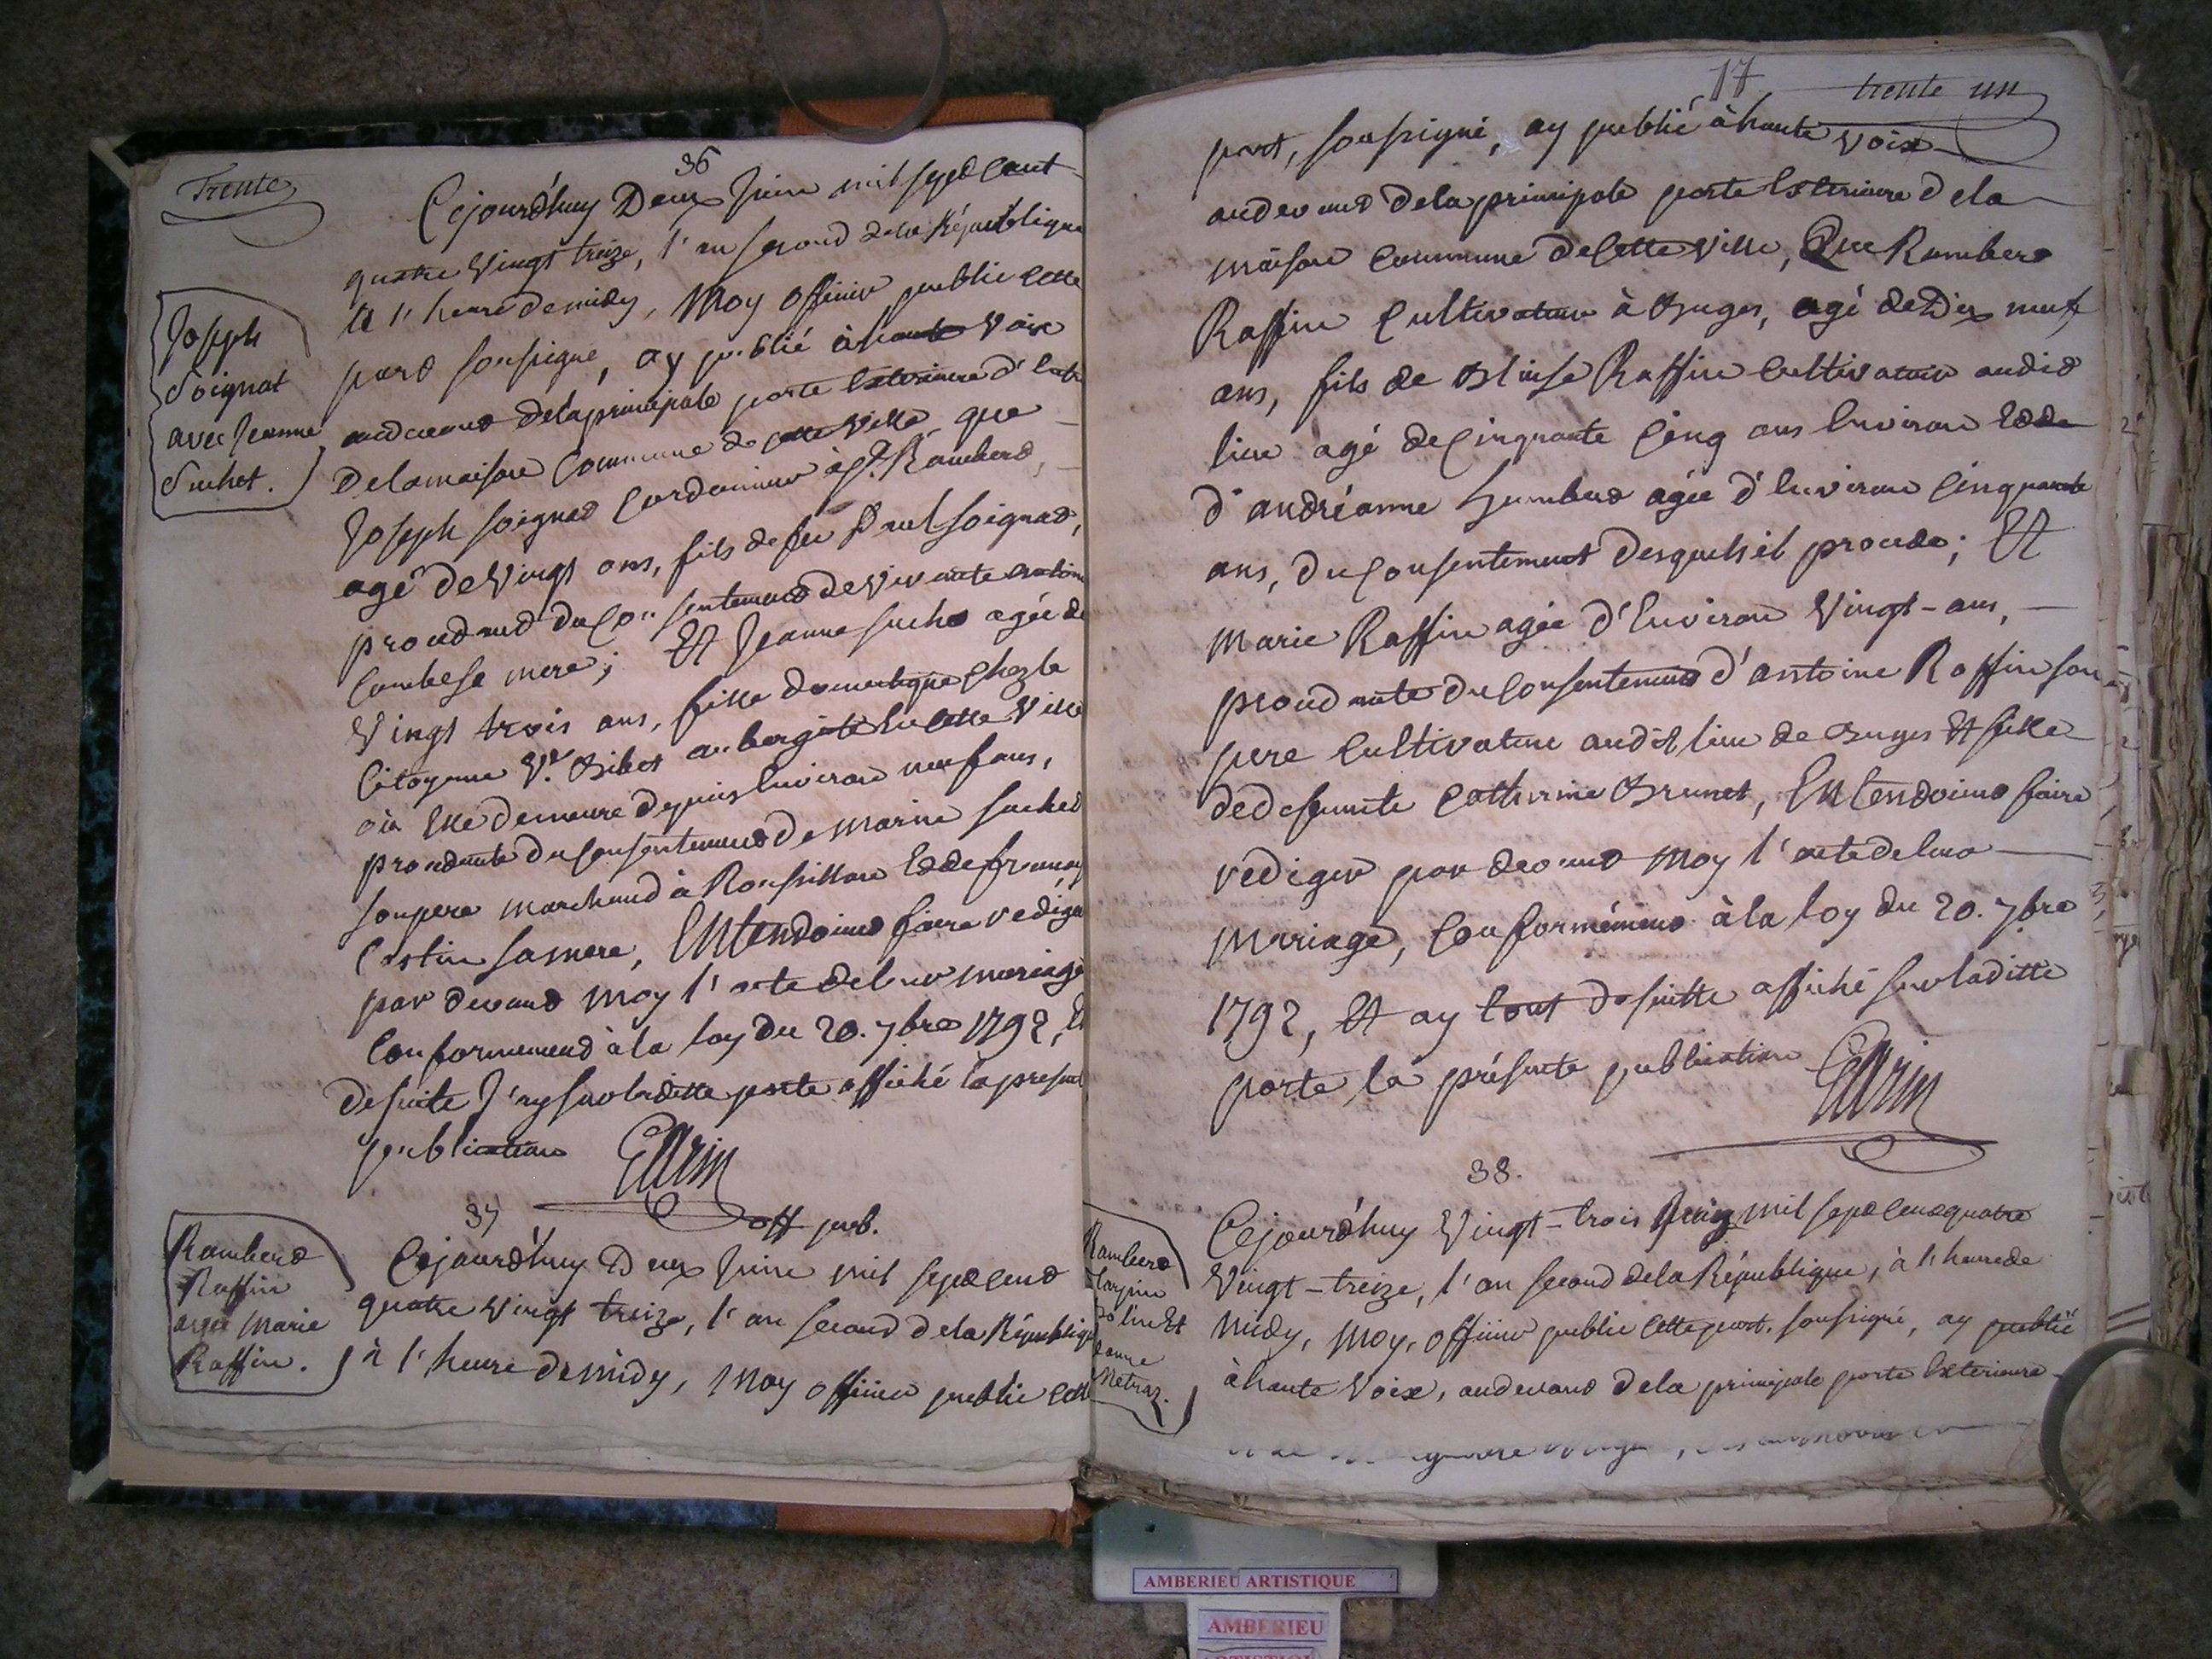 Trente
36
Cejourd'huy Deux Juin mil sept cent
quatre Vingt treize, l'an second de la République
à l'heure de midy, Moy officier public cette
part soussigné, ay publié à haute Voix
audevant de la principale porte Exterieure d'entré
De la maison Commune de cette Ville, que
Joseph soignat Cordonnier à St. Rambert,
agé de Vingt ans, fils de feu Paul soignat,
procedant du Consentement de Vivante antoine
Combe sa mere; Et Jeanne suchet agée de
Vingt trois ans, fille domestique chez la
Citoyenne Ve. Bibet aubergiste En cette Ville
où Elle demeure depuis Environ neuf ans,
procedante du consentement de Marin suchet
son pere marchand à Roussillon Et de françoise
Costin sa mere, Entendoient faire rediger
par devant moy l'acte de leur mariage
Conformement à la loy du 20. 7bre 1792, Et
de suite J'ay sur laditte porte affiché la presente
publication
Garin
off pub.
Joseph
Soignat
avec Jeanne
Suchet.
37
Cejourd'huy Deux Juin mil sept cent
quatre Vingt treize, l'an second de la République
à l'heure de midy, Moy officier public cette
Rambert
Raffin
avec Marie
Raffin.
17
trente un
part, soussigné, ay publié à haute Voix
audevant de la principale porte Exterieure de la
maison Commune de Cette Ville, Que Rambert
Raffin Cultivateur à Buges, agé de Dix neuf
ans, fils de Blaise Raffin Cultivateur audit
lieu agé de Cinquante Cinq ans Environ Et de
d'andréanne humbert agée d'Environ Cinquante
ans, du Consentement desquels il procede; Et
Marie Raffin agée d'Environ Vingt-ans,
procedante du Consentement d'antoine Raffin son
pere Cultivateur audit lieu de Buges Et fille
de defunte Catherine Brunet, Entendoient faire
rediger par devant Moy l'acte de leur
Mariage, Conformément à la loy du 20. 7bre
1792, Et ay tout de suitte affiché sur laditte
porte la présente publication
Garin
38.
Cejourd'huy Vingt-trois Juin mil sept cent quatre
Vingt-treize, l'an second de la République, à l'heure de
midy, Moy, officier public cette part, soussigné, ay publié
à haute Voix, audevant de la principale porte Exterieure
Rambert
Et
Metraz.
AMBERIEU ARTISTIQUE
AMBERIEU
ARTISTIQUE